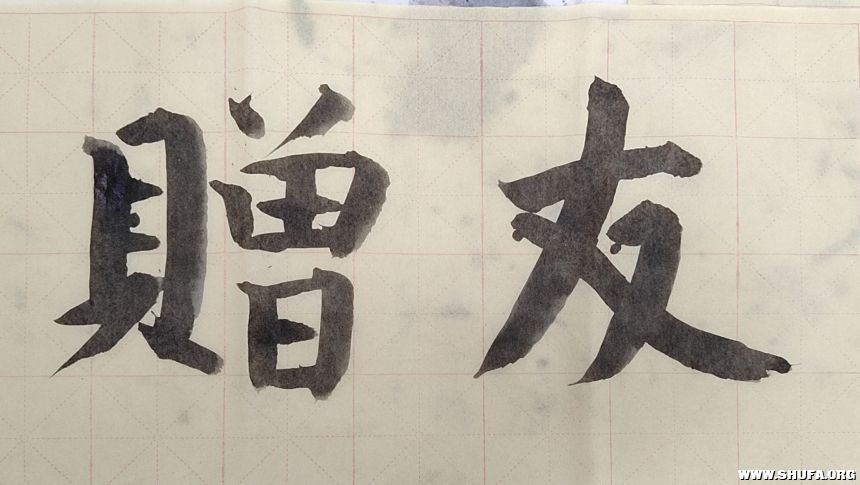 贈友
WWW.SHUFA.ORG